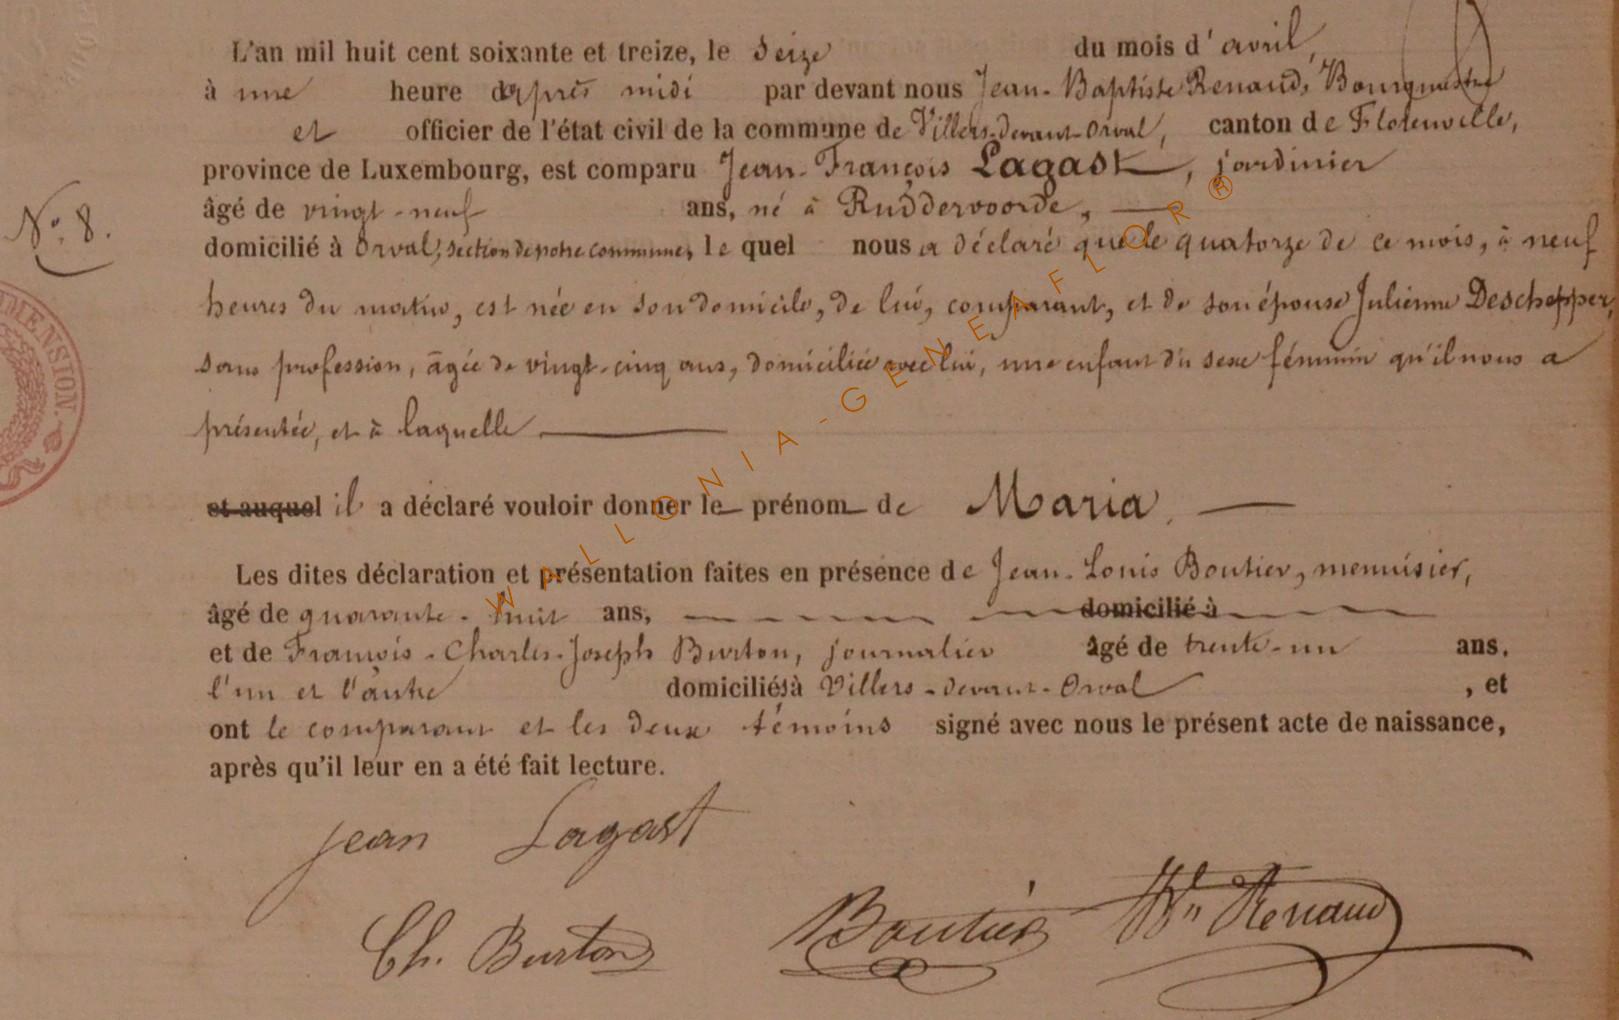 L'an mil huit cent soixante et treize, le seize du mois d'avril,
à une heure d'après midi par devant nous Jean-Baptiste Renaud, Bourgmestre
et officier de l'état civil de la commune de Villers-devant-Orval, canton de Florenville,
province de Luxembourg, est comparu Jean-François Lagast, jardinier
âgé de vingt-neuf ans, né à Ruddervoorde,
N° 8.
domicilié à Orval, section de notre commune, lequel nous a déclaré que le quatorze de ce mois, à neuf
heures du matin, est née en son domicile, de lui, comparant, et de son épouse Julienne Deschepper,
sans profession, âgée de vingt-cinq ans, domiciliée avec lui, une enfant du sexe féminin qu'il nous a
présentée, et à laquelle
et auquel il a déclaré vouloir donner le prénom de Maria.
Les dites déclaration et présentation faites en présence de Jean-Louis Boutier, menuisier,
âgé de quarante-huit ans, domicilié à
et de François-Charles-Joseph Burton, journalier âgé de trente-un ans,
l'un et l'autre domiciliés à Villers-devant-Orval, et
ont le comparant et les deux témoins signé avec nous le présent acte de naissance,
après qu'il leur en a été fait lecture.
jean Lagast
Ch. Burton Boutier Renaud
WALLONIA-GENEAFLOR®
DIMENSION.